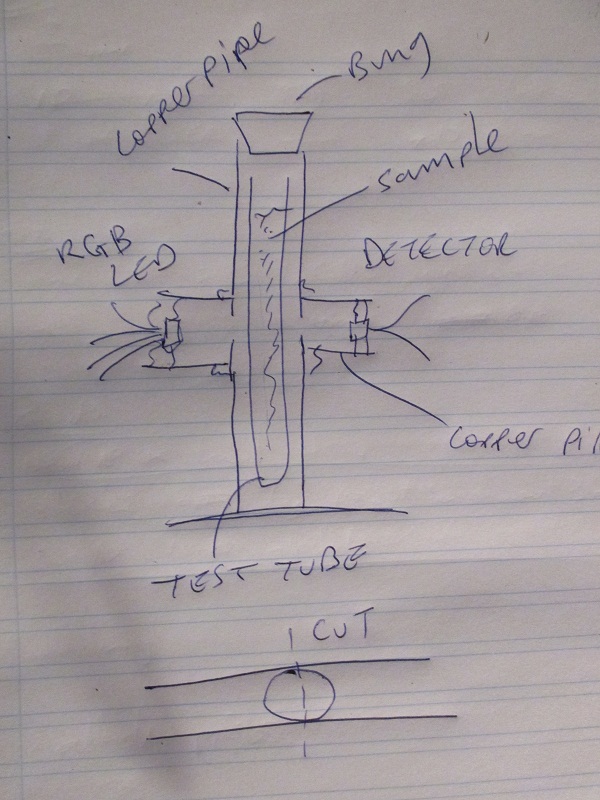 Copper pipe
Bung
Sample
RGB
LED
DETECTOR
Copper pi
TEST TUBE
CUT